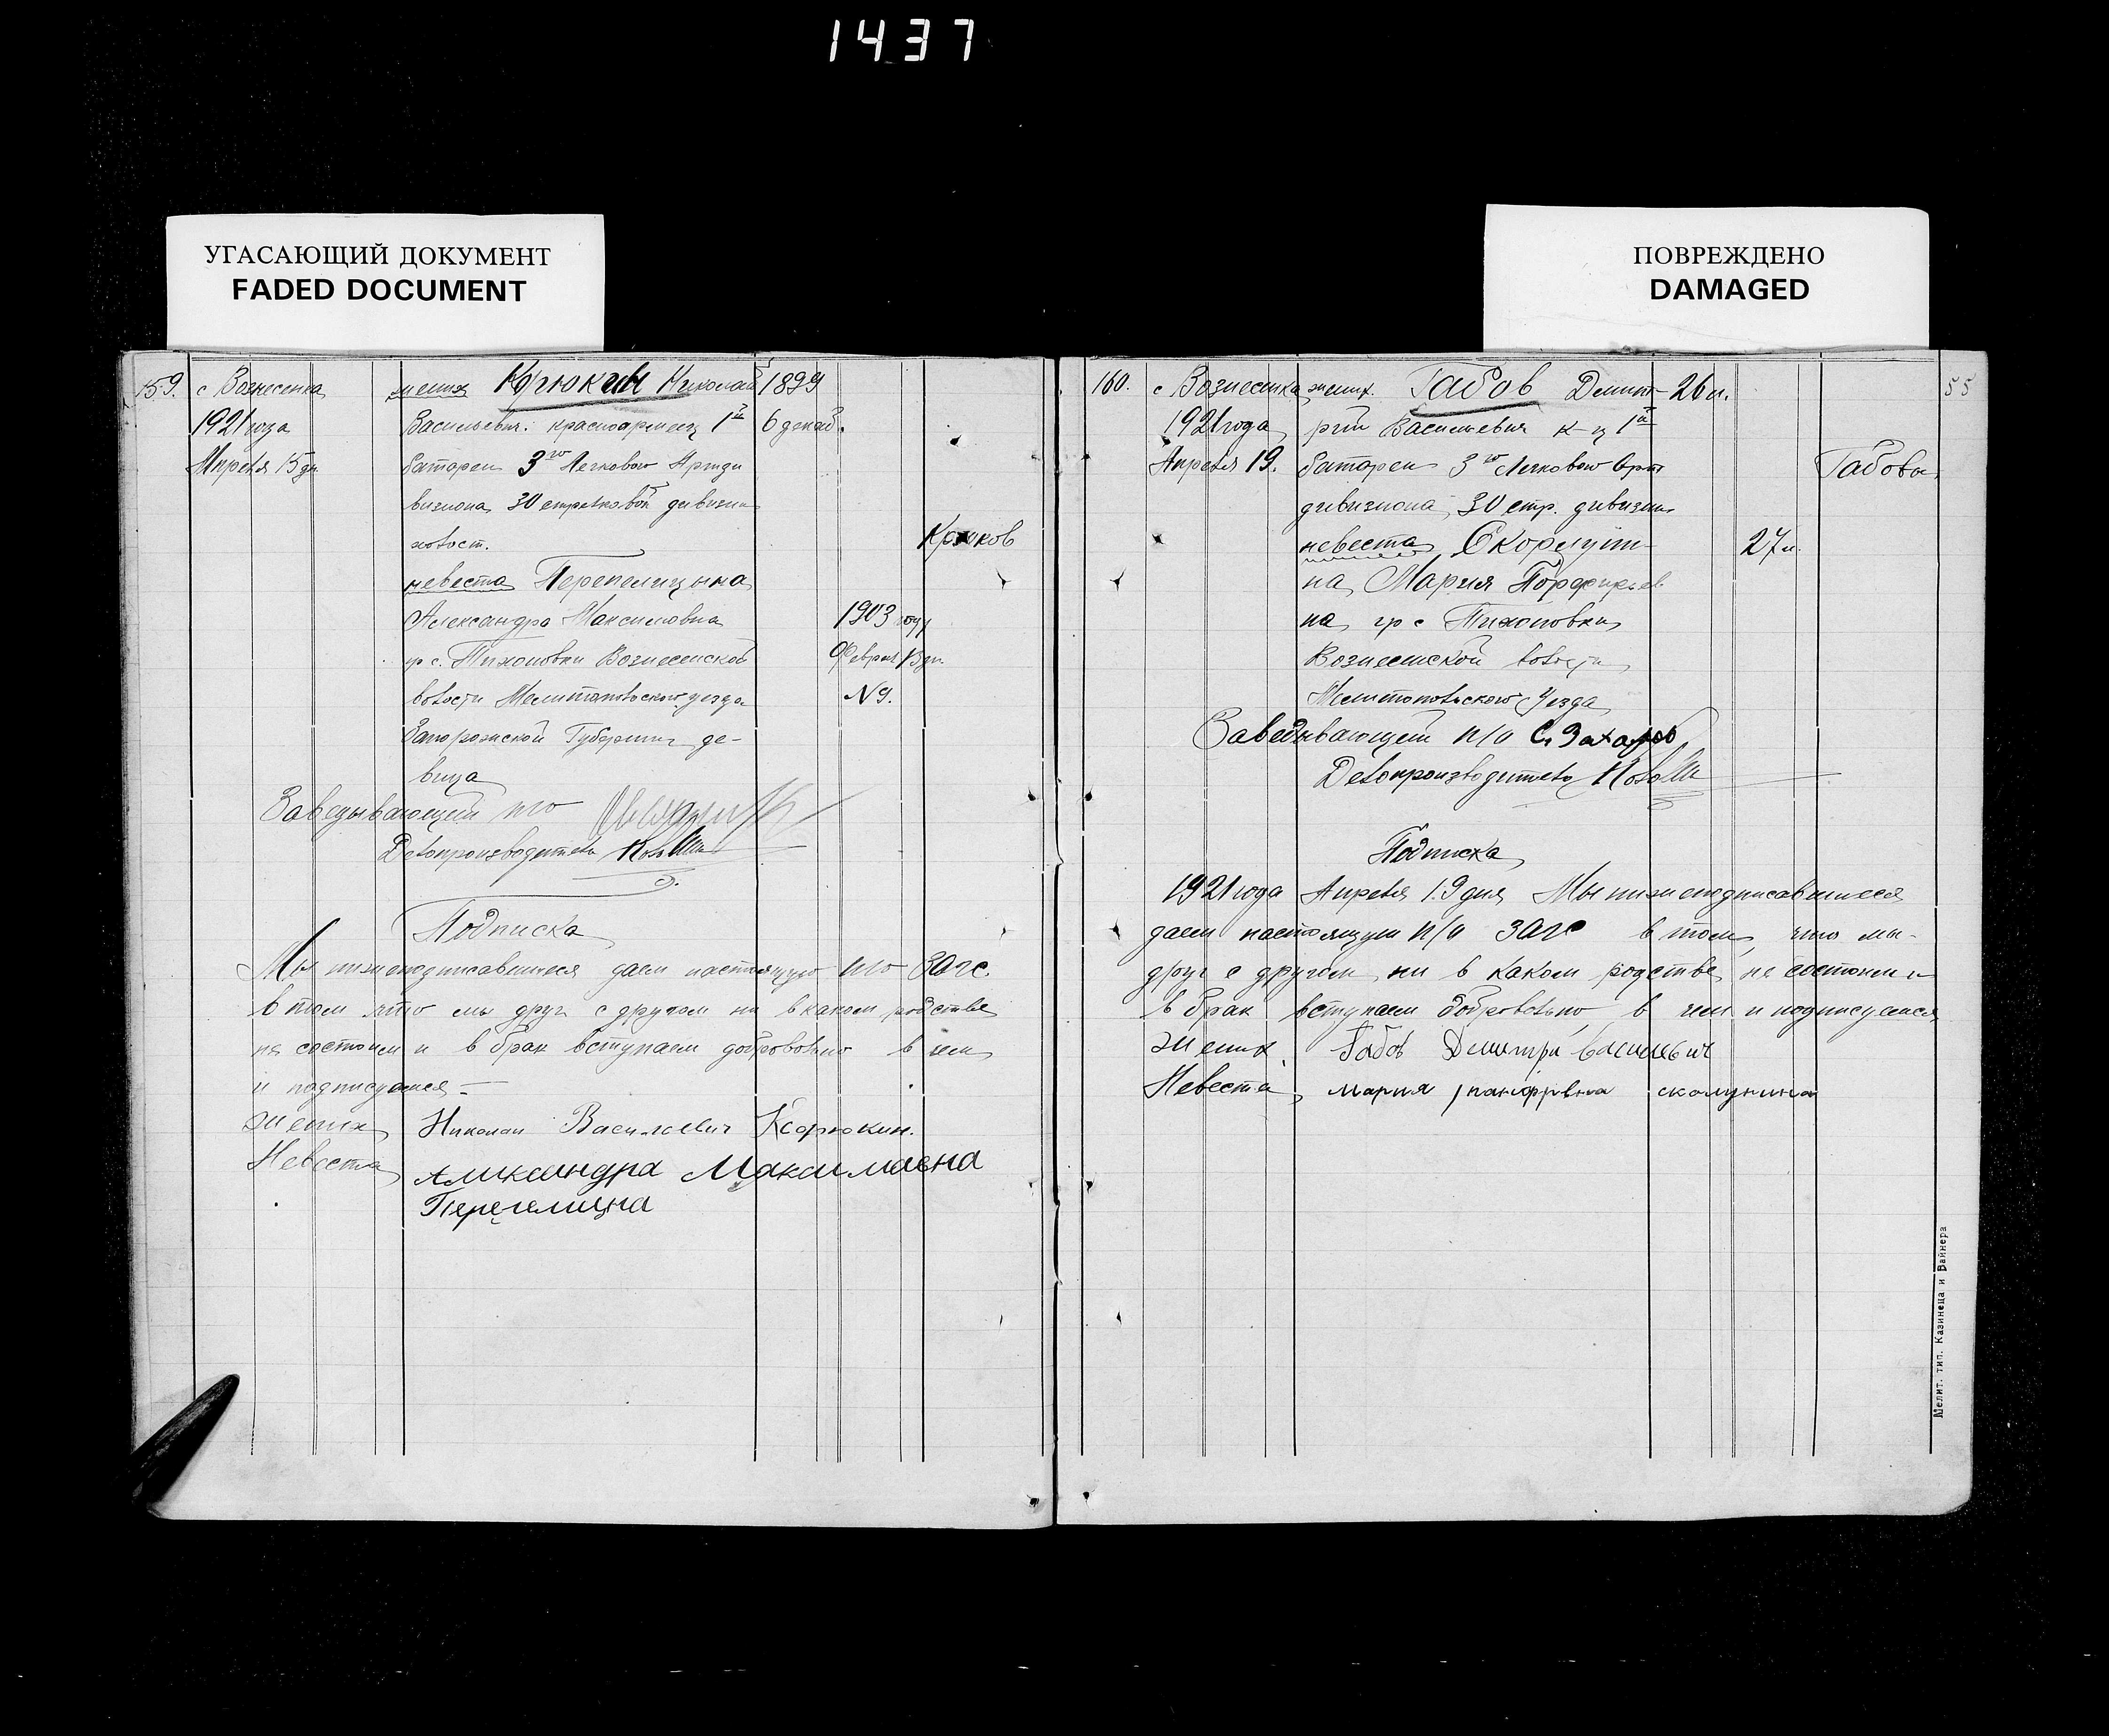 1437
УГАСАЮЩИЙ ДОКУМЕНТ
FADED DOCUMENT
ПОВРЕЖДЕНО
DAMAGED
159. с Вознесенка жених Крюкин Николай 1899
1921 года Васильевич красноармеец 1й 6 декаб.
Апреля 15 дн. батареи 3го Легкового Артди
визиона 30 стрелковой дивизии
холост. Крюков
невеста Перепелицына
Александра Максимовна 1903 году
гр с. Тихоновки Вознесенской Феврал 13 дн.
волости Мелитопольского уезда № 9.
Запорожской Губернии де-
вица
Заведывающий п/о
Делопроизводитель
Подписка
Мы нижеподписавшиеся даем настоящую п/о ЗАГС
в том что мы друг с другом ни в каком родстве
не состоим и в брак вступаем добровольно в чем
и подписуемся
жених Николай Василевич Корюкин.
Невеста Александра Максимовна
Перепелицна
160. с Вознесенка жених. Габов Димит- 26 л. 55
1921 года рий Васильевич к-ц 1й
Апреля 19. батареи 3го Легковово Арт Габовы
дивизиона 30 стр. дивизии
невеста Скорлупи- 27 л.
на Мария Порфирьев
на гр с Тихоновки
Вознесенской волости
Мелитопольского Уезда
Заведывающий п/о С. Захаров
Делопроизводитель
Подписка
1921 года Апреля 19 дня Мы нижеподписавшиеся
даем настоящую п/о ЗАГС в том, что мы
друг с другом ни в каком родстве не состоим и
в брак вступаем добровольно в чем и подписуемся
жених. Габов Димитри Василевич
Невеста мария
Мелит. тип. Казинеца и Вайнера